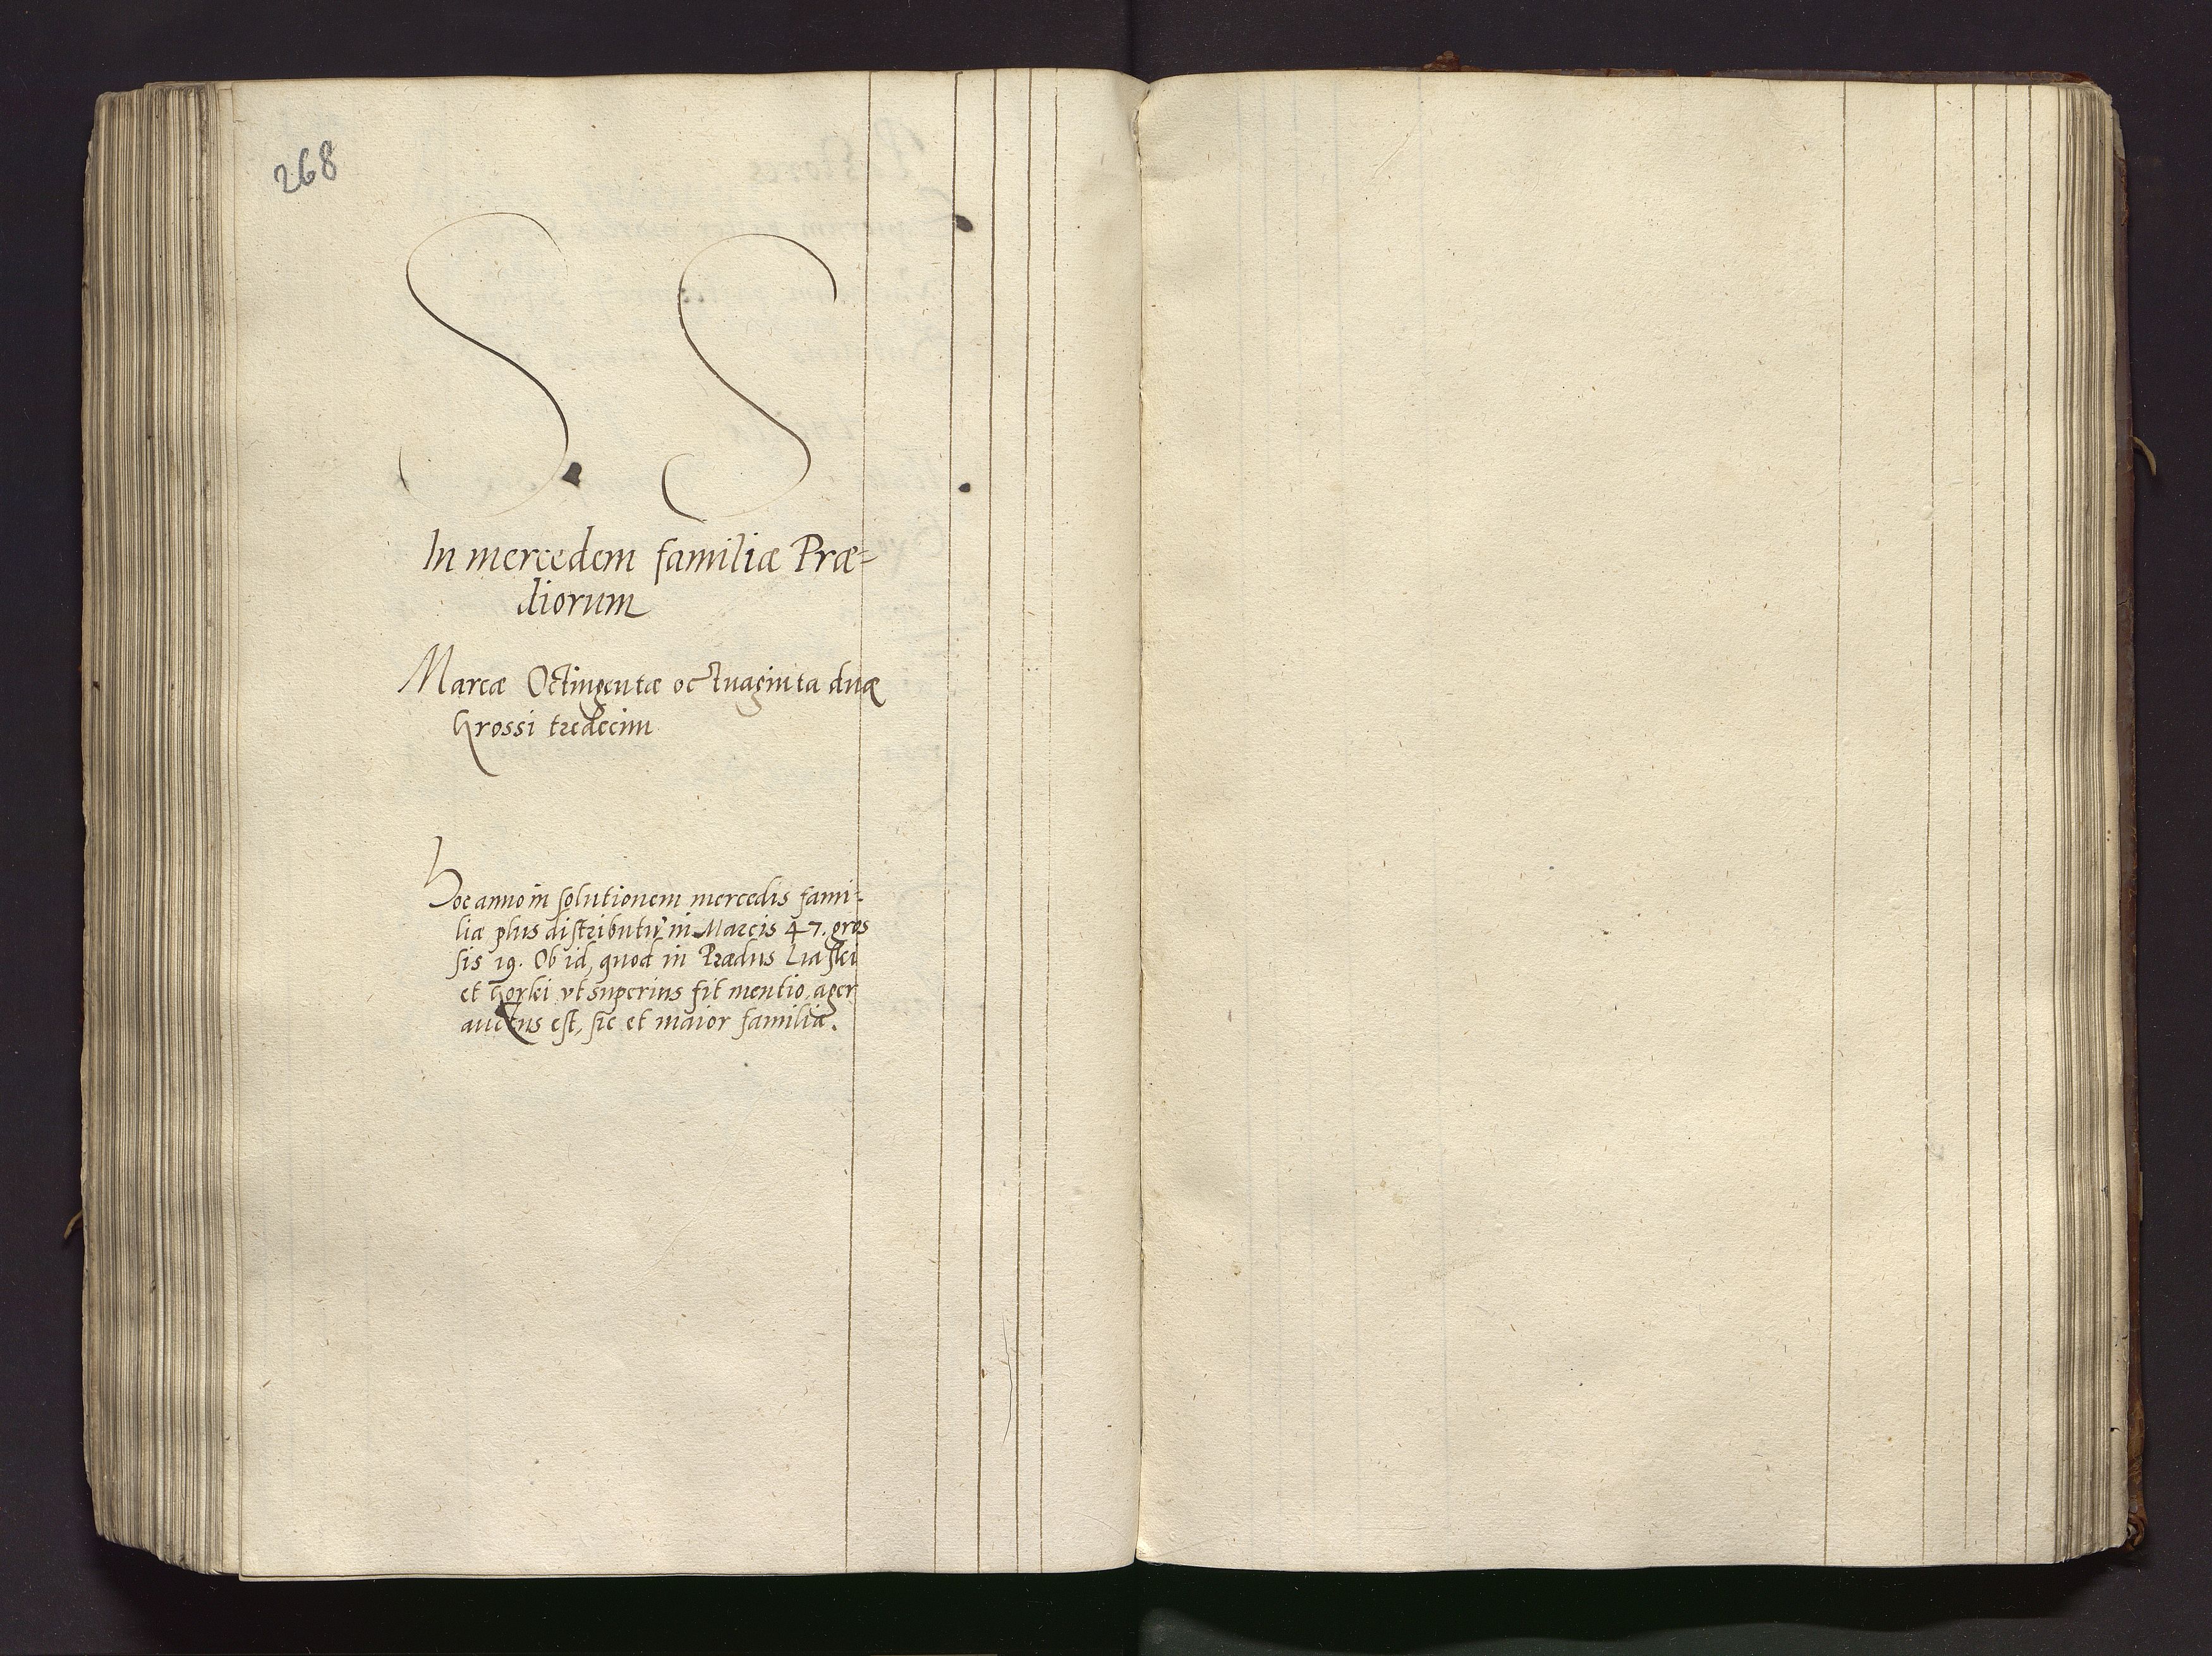 268
S S
In mercedem familiæ Præ=
diorum
Marcæ Octingentæ octuaginta duæ
Grossi tredecim
Hoc anno in solutionem mercedis fami-
liæ plus distributũ in Marcis 47. gros
sis 19. Ob id, quod in Prædiis
et Gorki vt superius fit mentio, ager
auctus est, sic et maior familia.